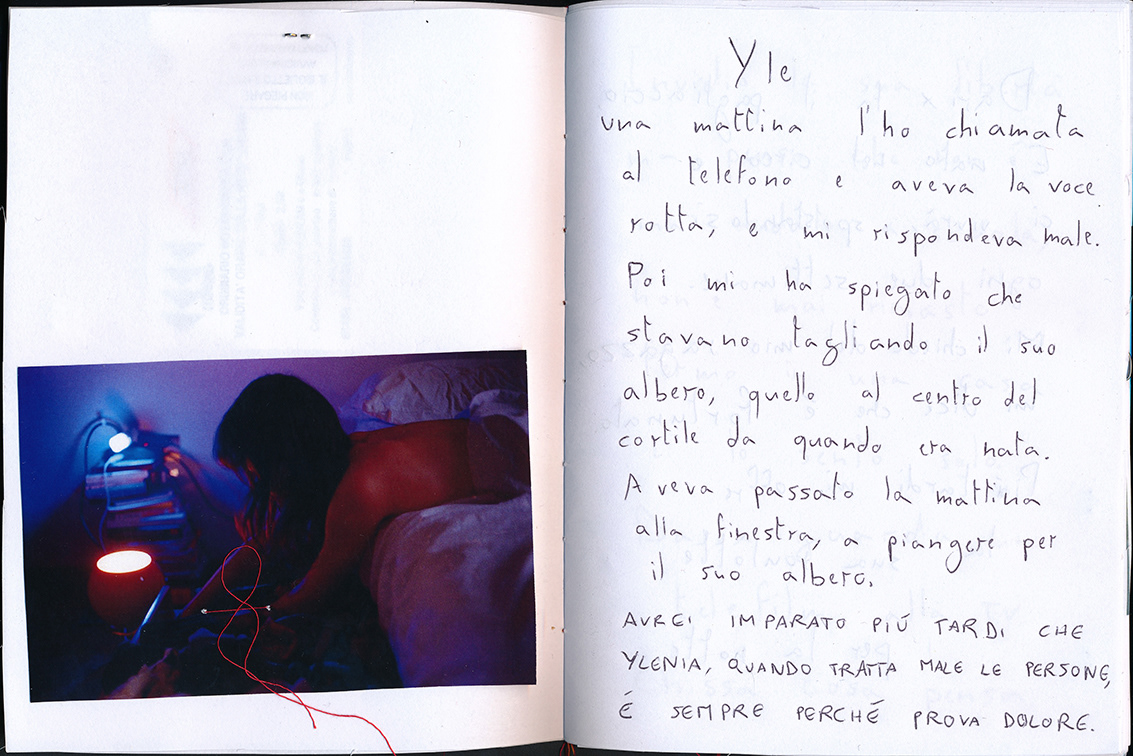 Yle
una mattina l'ho chiamata
al telefono e aveva la voce
rotta, e mi rispondeva male.
Poi mi ha spiegato che
stavano tagliando il suo
albero, quello al centro del
cortile da quando era nata.
Aveva passato la mattina
alla finestra, a piangere per
il suo albero.
AVREI IMPARATO PIÚ TARDI CHE
YLENIA, QUANDO TRATTA MALE LE PERSONE,
É SEMPRE PERCHÉ PROVA DOLORE.